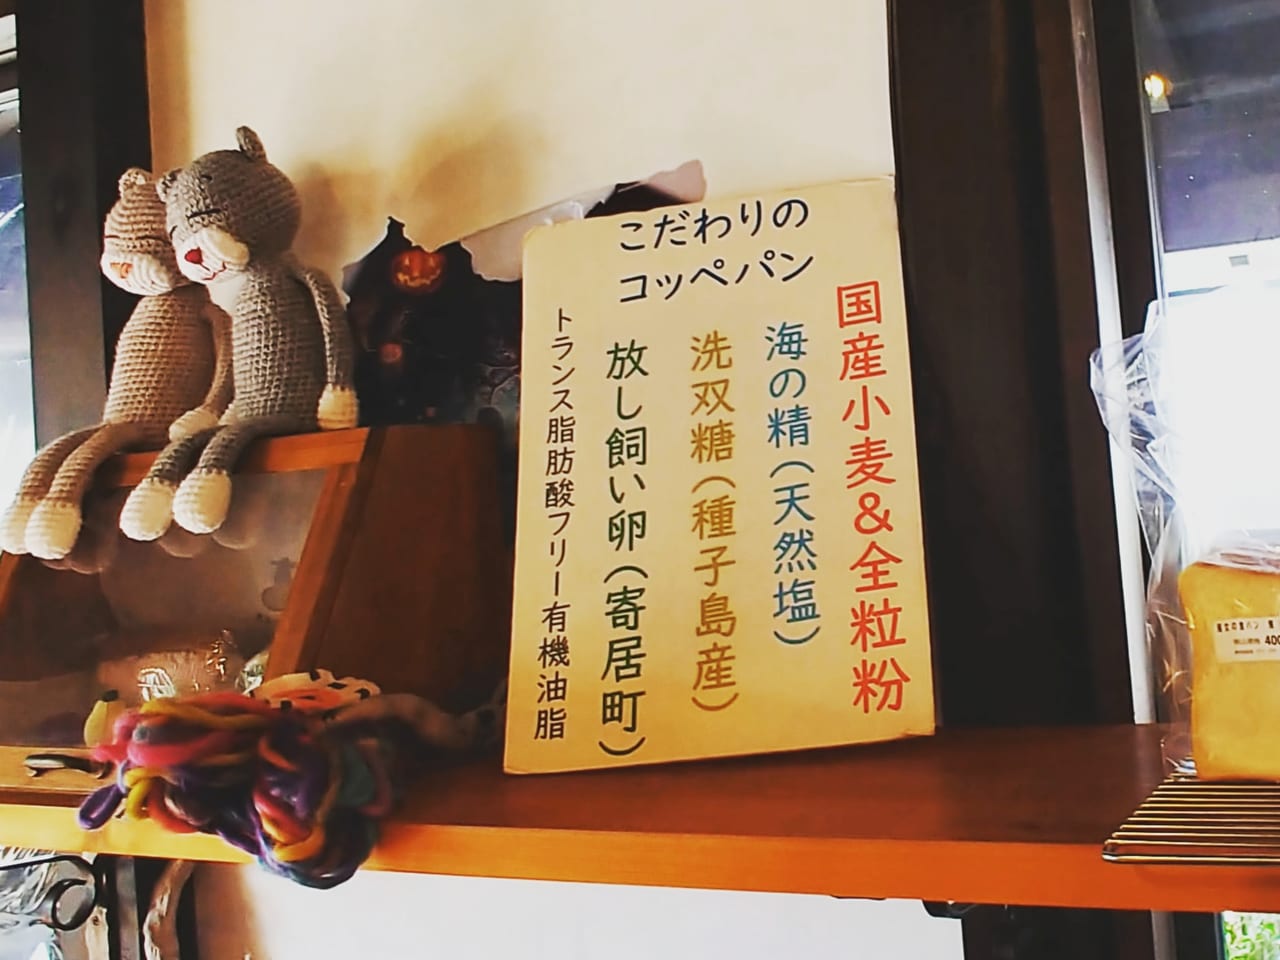 こだわりの
コッペパン
国産小麦&全粒粉
海の精(天然塩)
洗双糖(種子島産)
放し飼い卵(寄居町)
トランス脂肪酸フリー有機油脂
400